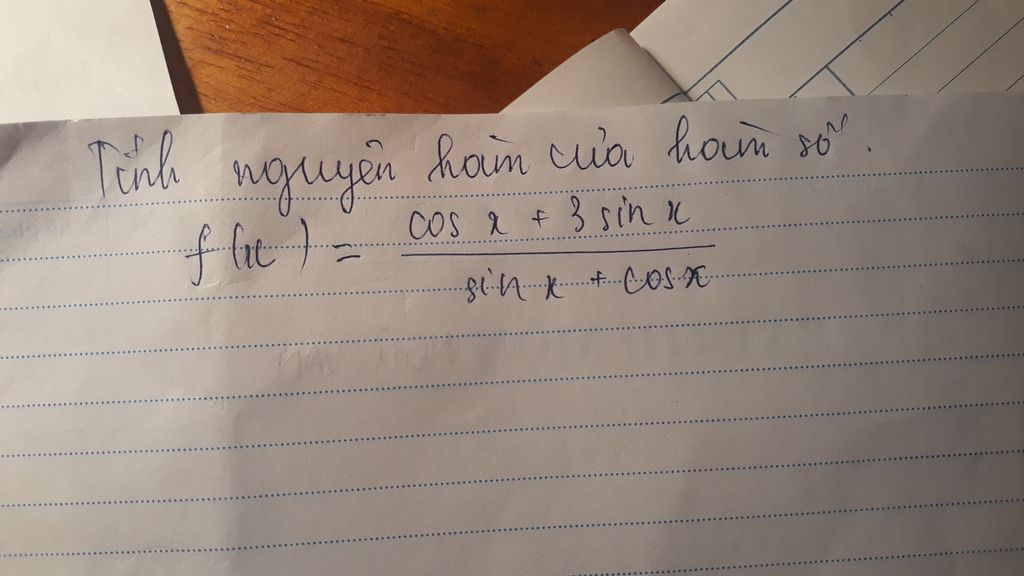 Tính nguyên hàm của hàm số.
f(x) = \frac{cos x + 3 sin x}{sin x + cos x}